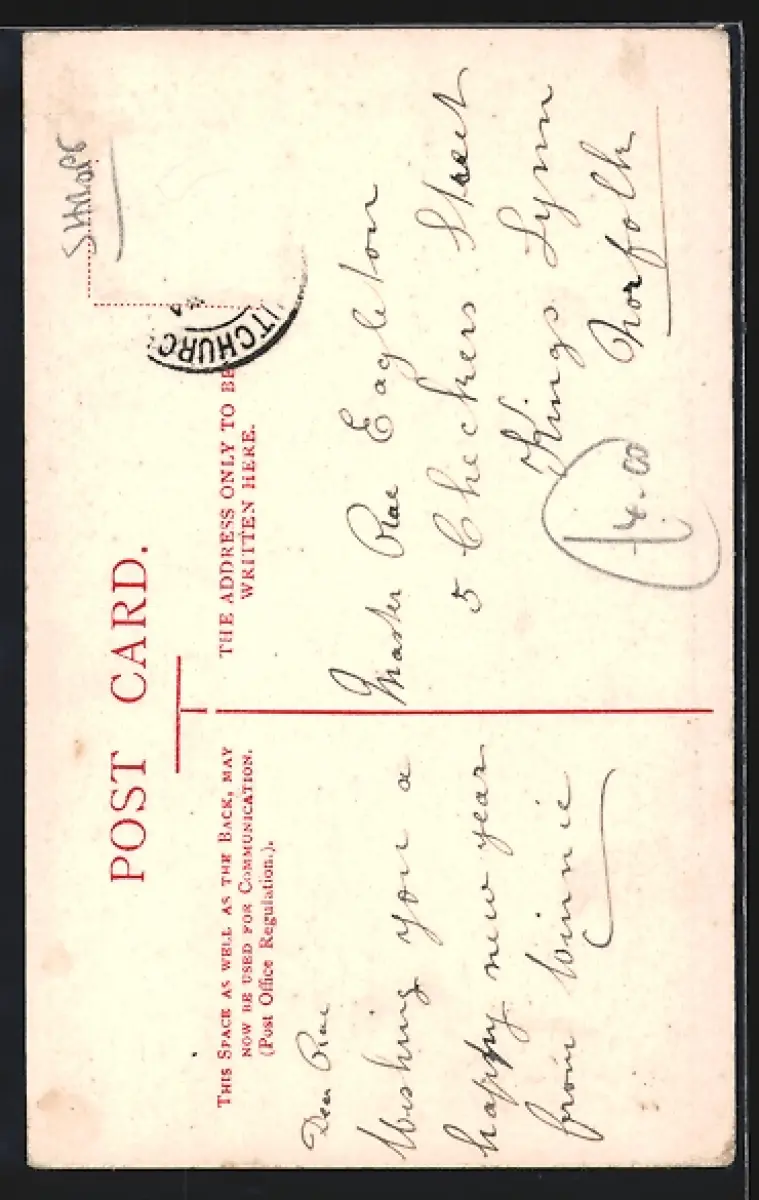 POST CARD.
THIS SPACE AS WELL AS THE BACK, MAY
NOW BE USED FOR COMMUNICATION.
(Post Office Regulation.).
THE ADDRESS ONLY TO BE
WRITTEN HERE.
ITCHURC
Dear Rae
Wishing you a
happy new year
from Winnie
Master Rae Eagleton
5 Checkers Street
Kings Lynn
Norfolk